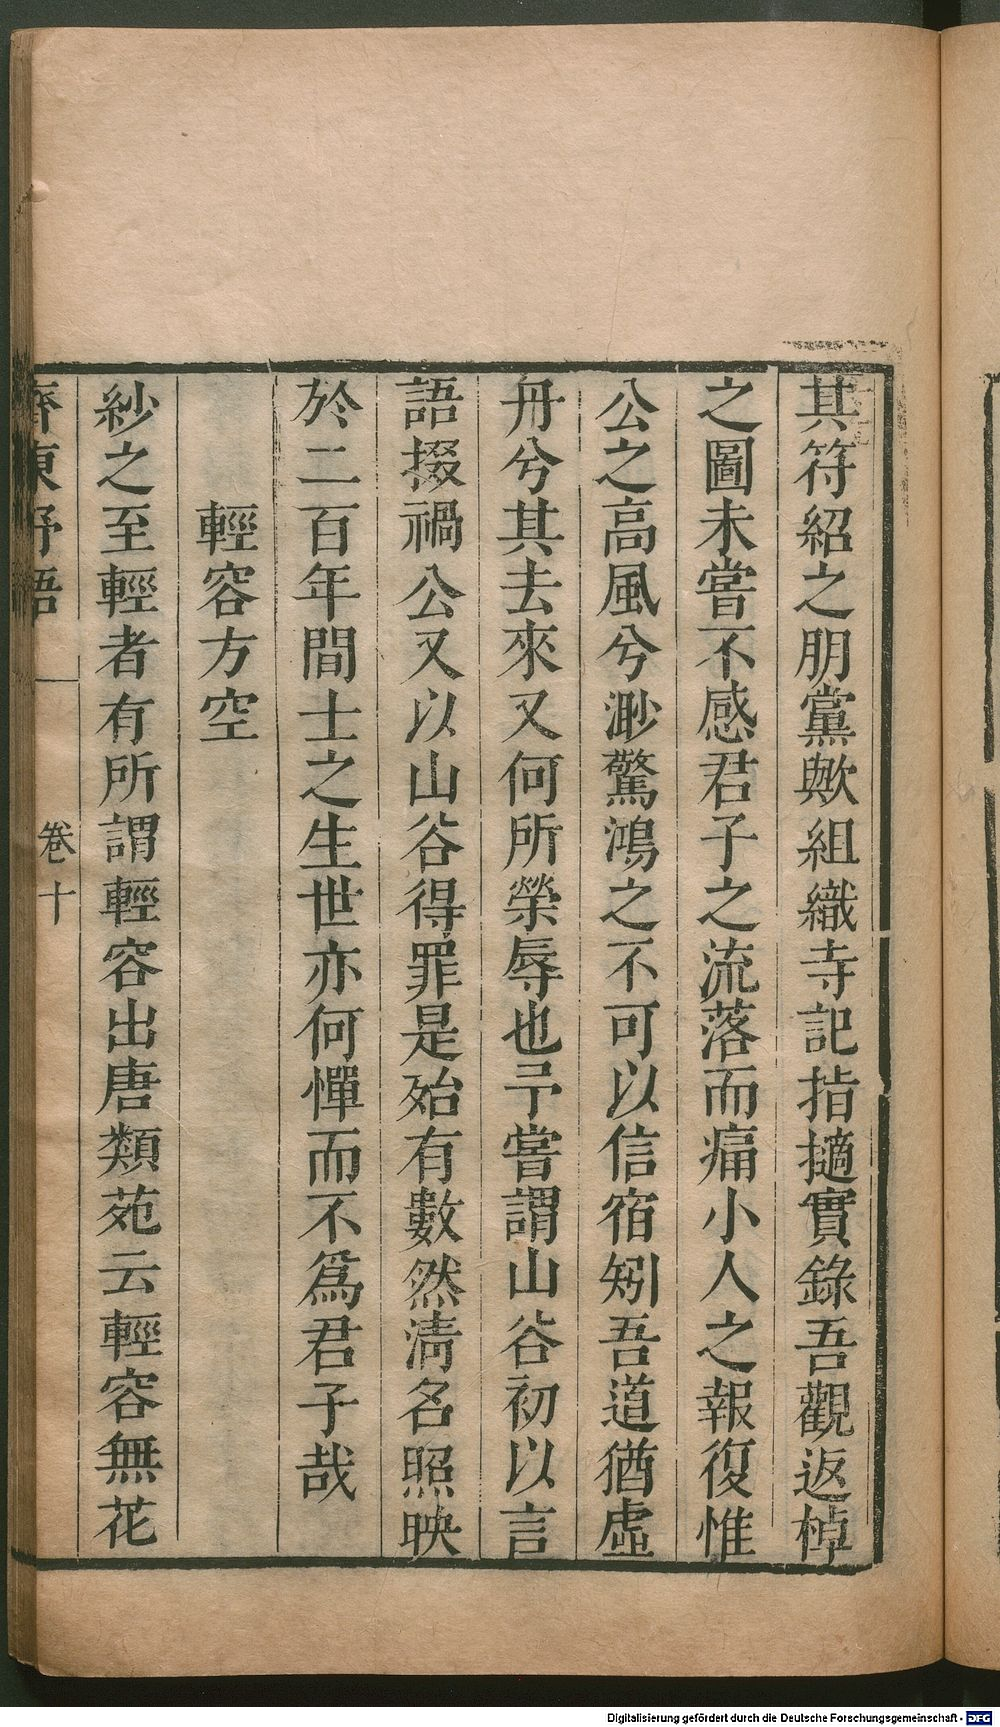 其符紹之朋黨歟組織寺記指擿實錄吾觀返棹
之圖未嘗不感君子之流落而痛小人之報復惟
公之高風兮渺驚鴻之不可以信宿矧吾道猶虛
舟兮其去來又何所榮辱也予嘗謂山谷初以言
語掇禍公又以山谷得罪是殆有數然清名照映
於二百年間士之生世亦何憚而不爲君子哉
輕容方空
紗之至輕者有所謂輕容出唐類苑云輕容無花
齊東野語
卷十
Digitalisierung gefördert durch die Deutsche Forschungsgemeinschaft - DFG